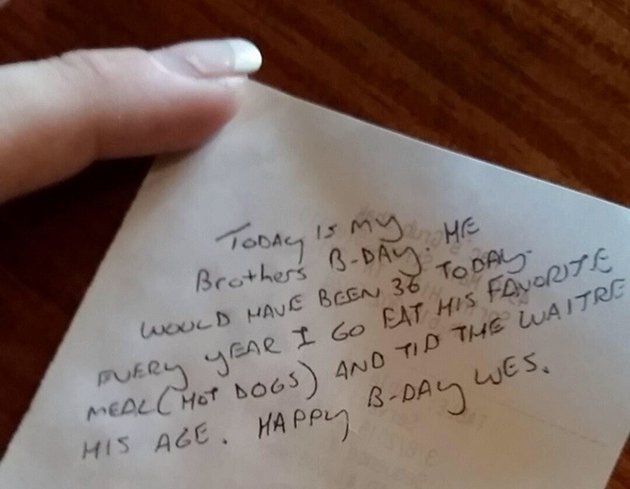 TODAY IS MY
Brothers B-DAY. HE
WOULD HAVE BEEN 36 TODAY.
EVERY YEAR I GO EAT HIS FAVORITE
MEAL (HOT DOGS) AND TID THE WAITRE
HIS AGE. HAPPY B-DAY WES.